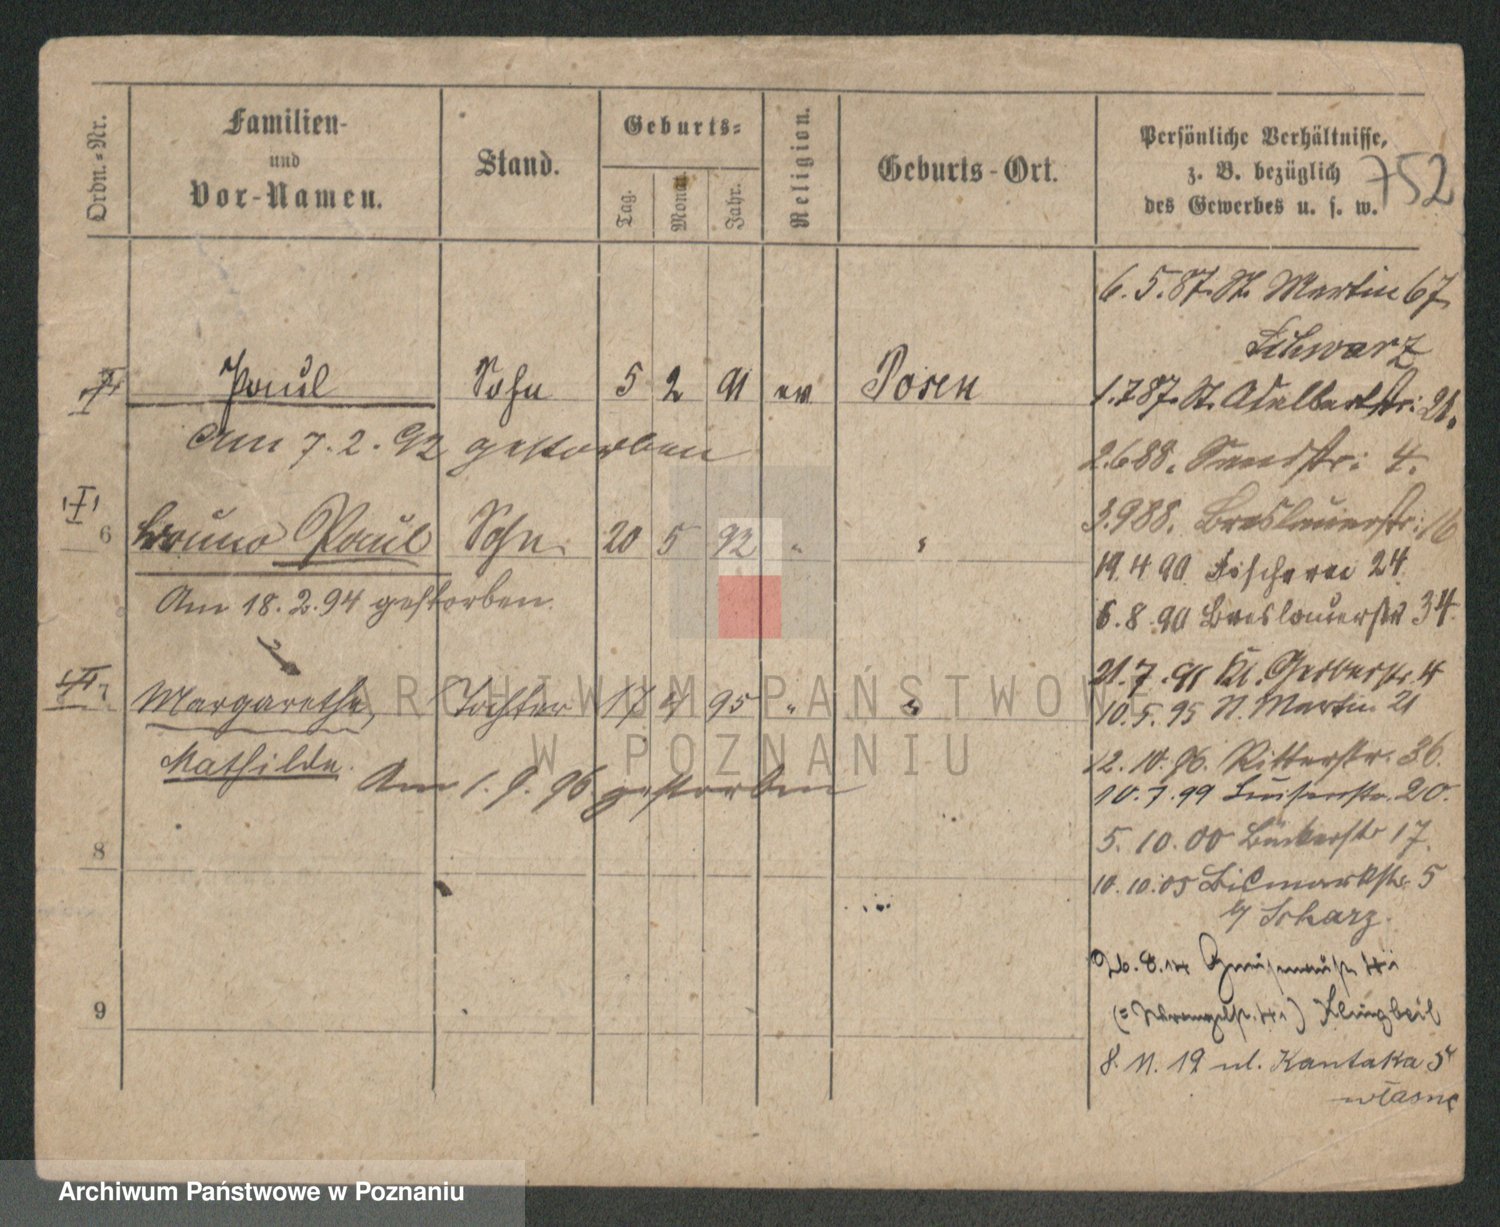 Ordn.-Nr.
Familien-
und
Vor-Namen.
Stand.
Geburts-
Tag.
Monat.
Jahr.
Religion.
Geburts-Ort.
Persönliche Verhältnisse,
z. B. bezüglich
des Gewerbes u. s. w.
752
6. 5. 87. St. Martin 67
Schwarz
Paul Sohn 5 2 91 ev Posen
1. 7 87. St. Adalbertstr: 28.
Am 7. 2. 92 gestorben
2.6 88. Sandstr: 4.
3. 9 88. Breslauerstr: 16
6 Bruno Paul Sohn. 20 5 92 " "
19. 4 90 Fischerei 24
Am 18. 2. 94 gestorben.
6. 8. 90 Breslauerstr 34.
21. 7. 91 Kl. Gerberstr. 4
7 Margarethe, Tochter 17 4 95 " "
10. 5. 95 St. Martin 21
Mathilde.
12. 10. 96. Ritterstr. 36.
Am 1. 9. 96 gestorben
10. 7. 99 Luisenstr. 20.
5. 10. 00 Bäckerstr 17.
8
10. 10. 05 Bismarkstr. 5
b/ Scharz.
26. 8. 14
9
Klingbeil
8. 11. 19 ul. Kantaka 5
własne
ARCHIWUM PAŃSTWOWE
W POZNANIU
Archiwum Państwowe w Poznaniu